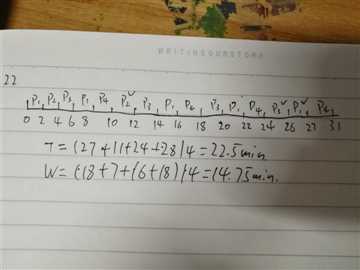 WRITINGOURSTORY
22
P₁ P₂ P₃ P₁ P₄ P₂ P₃ P₁ P₄ P₃ P₁ P₄ P₃ P₁ P₄
0 2 4 6 8 10 12 14 16 18 20 22 24 26 27 31
T = (27+11+24+28)/4 = 22.5min
W = (18+7+16+18)/4 = 14.75min.